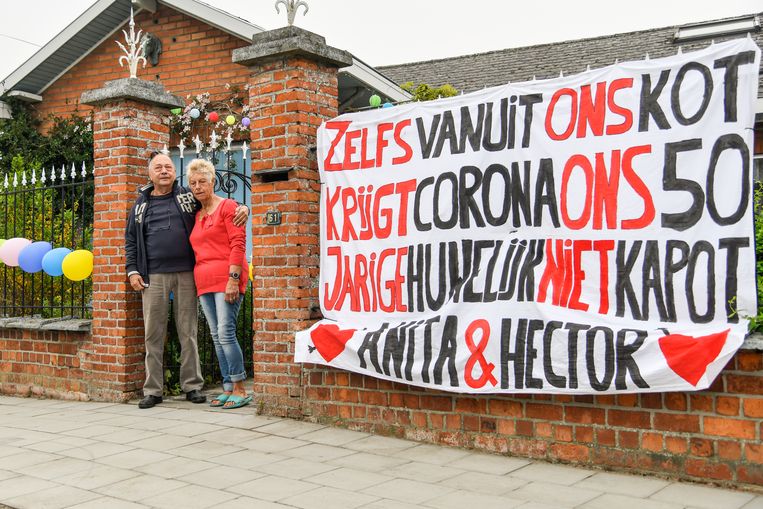 ZELFS VANUIT ONS KOT
KRIJGT CORONA ONS 50
JARIGE HUWELIJK NIET KAPOT
ANITA & HECTOR
51